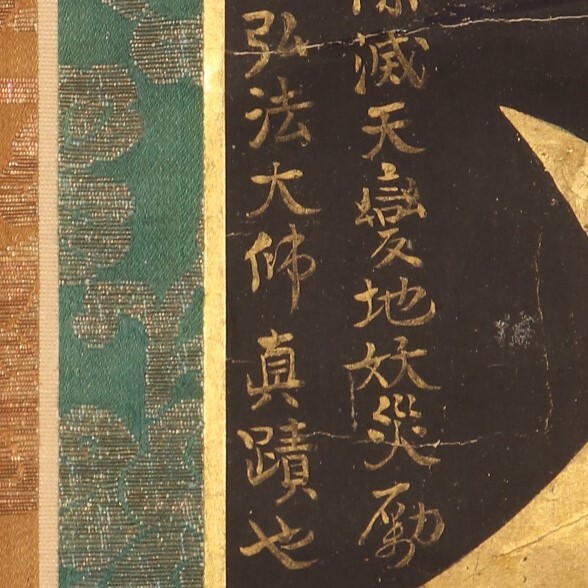 滅天變地妖災勅
弘法大师真蹟也